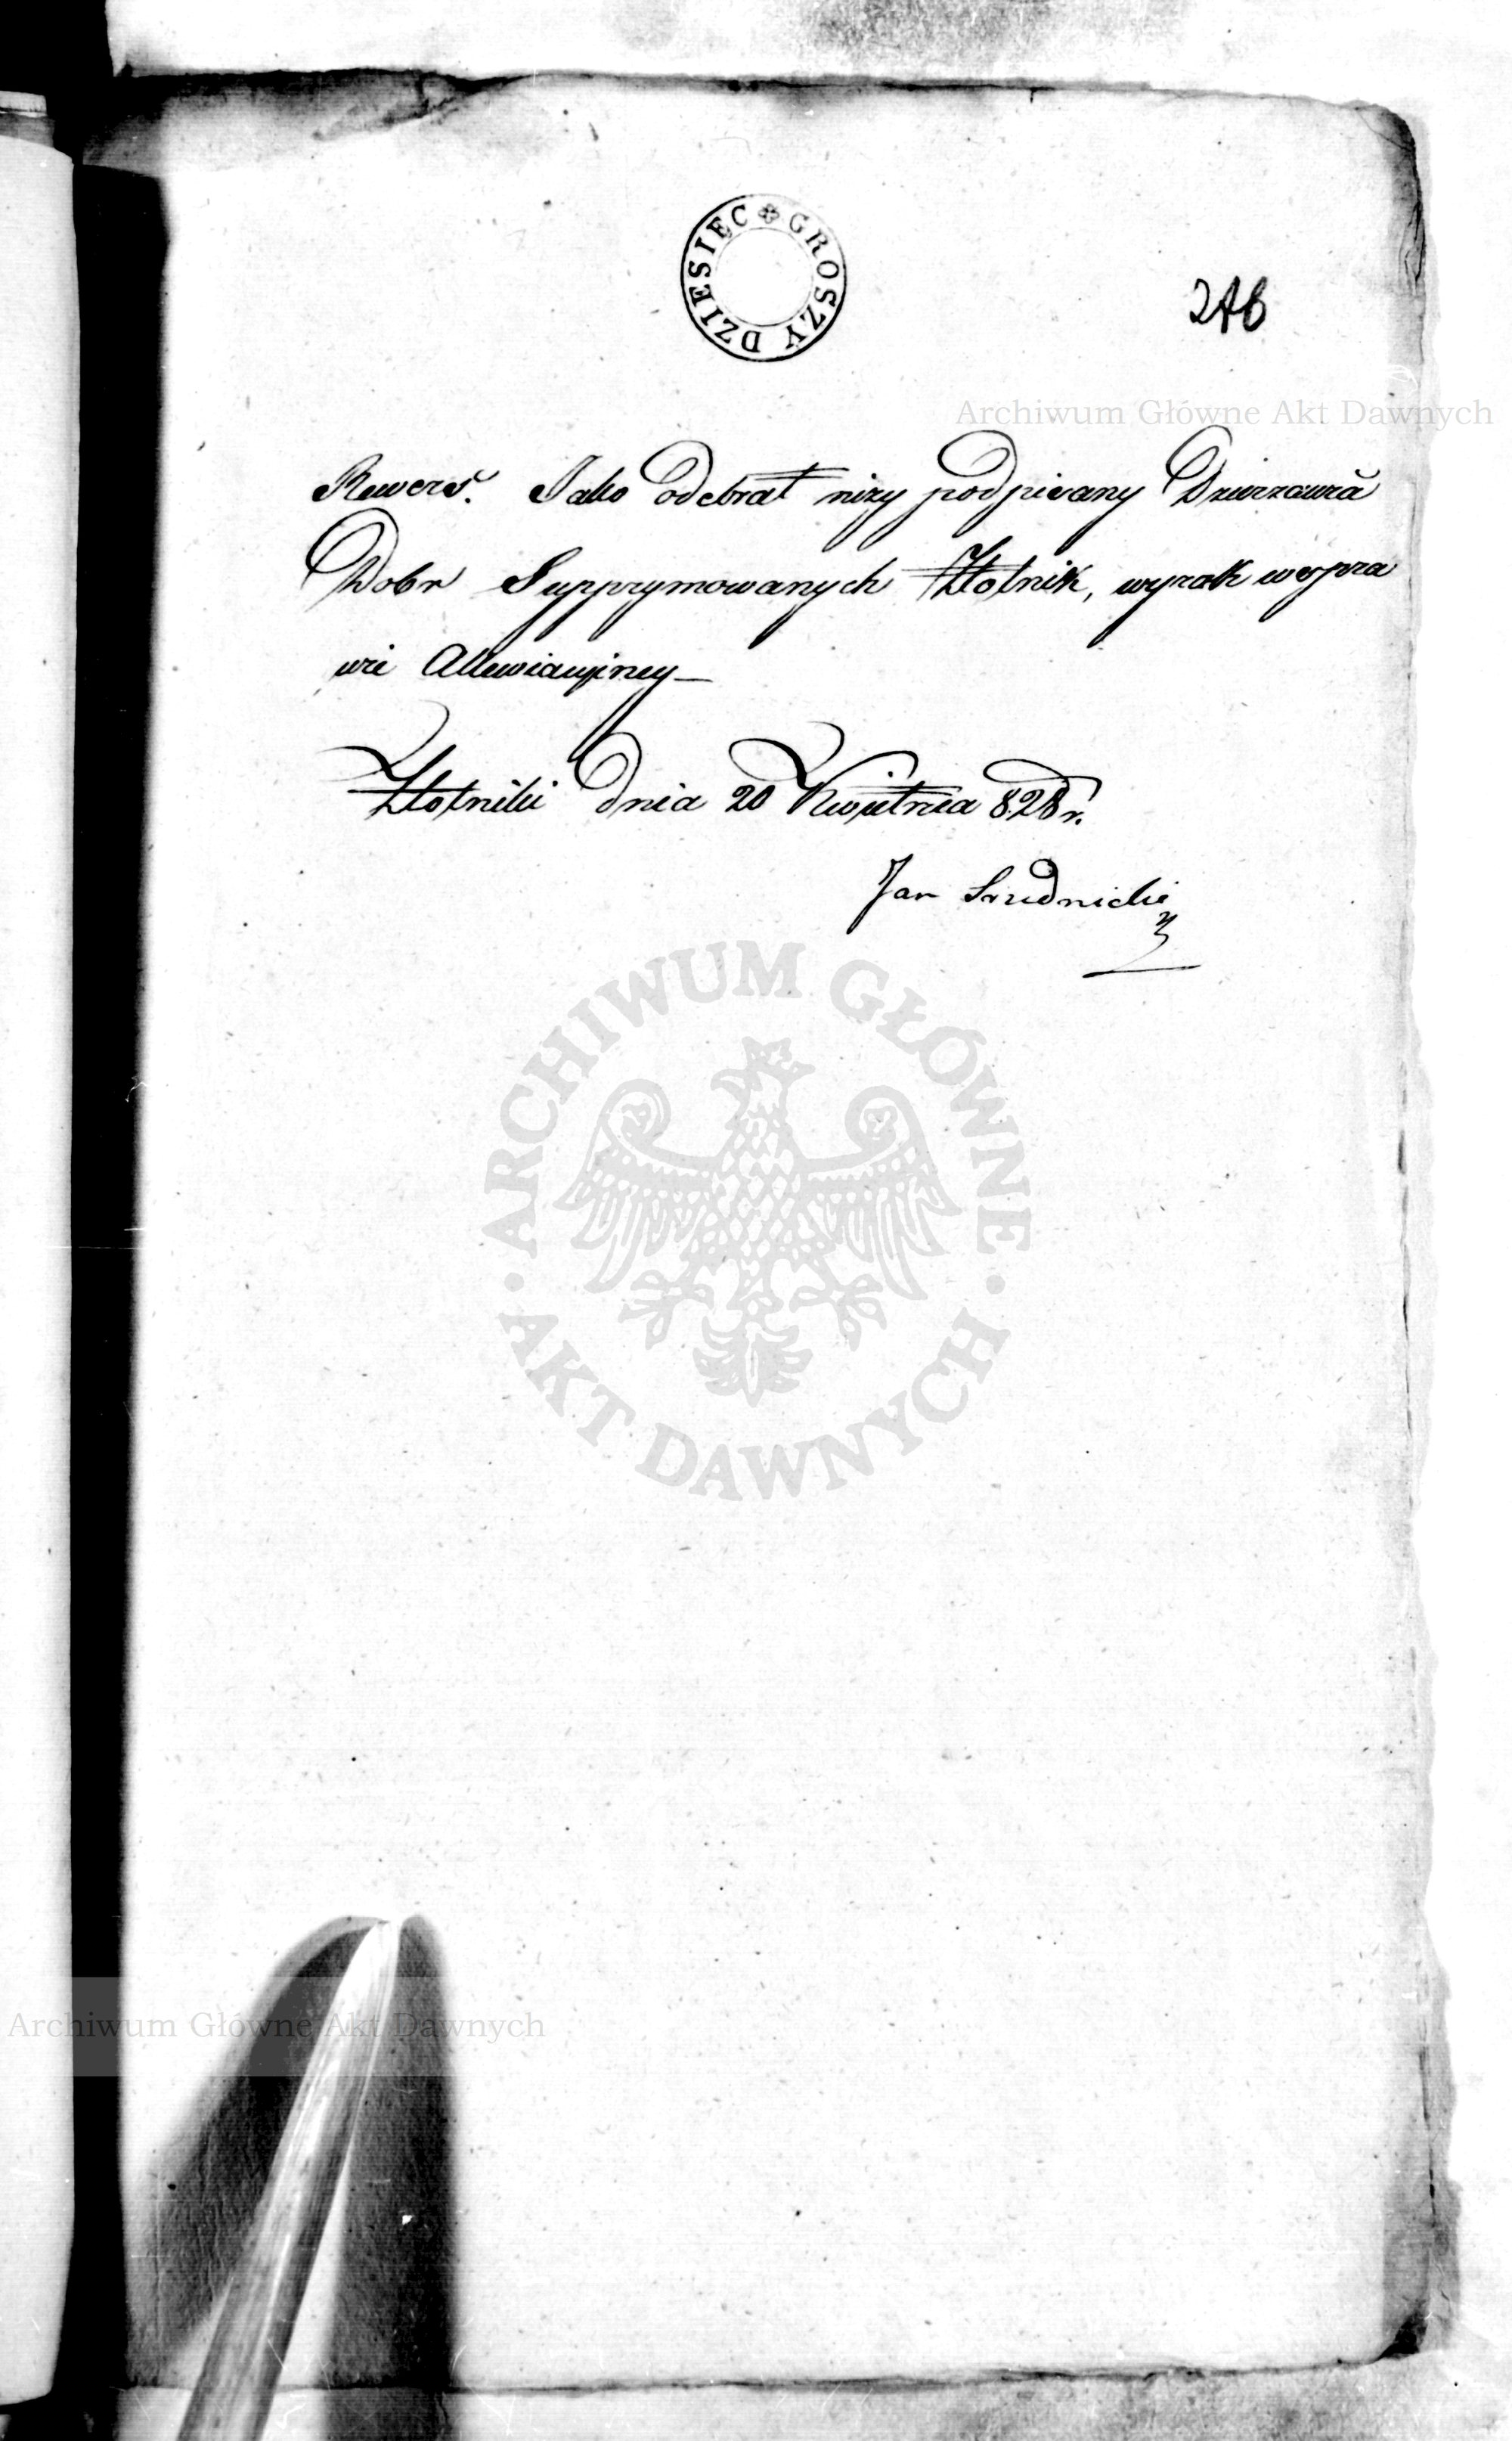 DZIESIĘC GROSZY
Archiwum Główne Akt Dawnych
Rewers. Jako odebrał niży podpisany Dzierzawca
Dobr Supprymowanych Złotnik, wyrok wspra
wie Allewiacyiney_
Złotniki dnia 20 Kwietnia 828 r.
Jan Srzednicki
ARCHIWUM GŁÓWNE
AKT DAWNYCH
Archiwum Główne Akt Dawnych